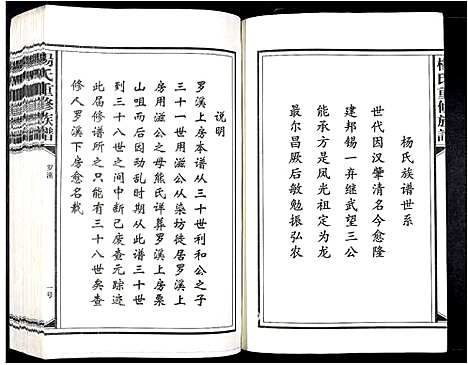 楊氏重修族譜
楊氏族譜世系
世代因汉肇清名今愈隆
建邦锡一弃继武望三公
能承方是凤光祖定为龙
最尔昌厥后敏勉振弘农
说明
罗溪上房本谱从三十世利和公之子
三十一世用滋公从染坊徒居罗溪上
房用滋公之母熊氏详葬罗溪上房栗
山咀而后因动乱时期从此谱三十世
到三十八世之间中断己废查元踪迹
此届修谱所之只能有三十八世矣查
修人罗溪下房愈名裁
楊氏重修族譜
罗溪
一号